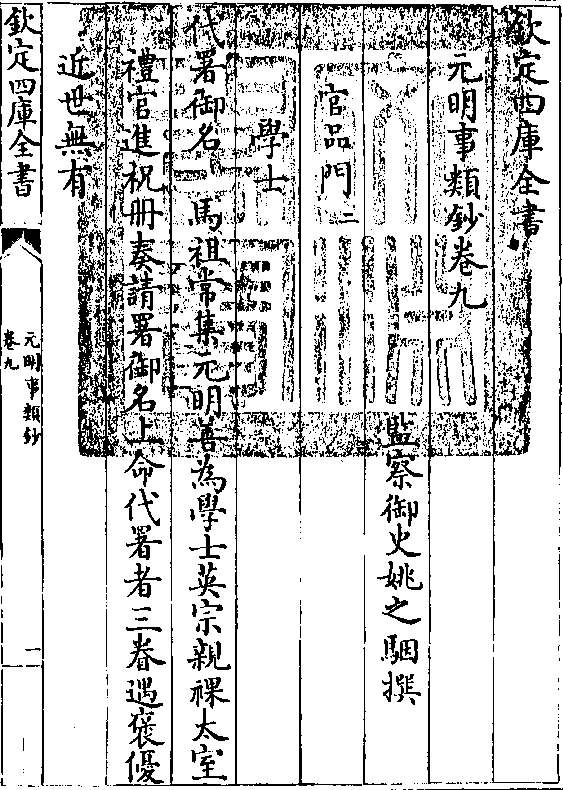 欽定四庫全書
元明事類鈔卷九
監察御史姚之駰撰
官品門二
學士
代署御名 馬祖常集元明善為學士英宗親祼太室
禮官進祝冊奏請署御名上命代署者三眷遇褒優
近世無有
欽定四庫全書
元明事類鈔
卷九
一